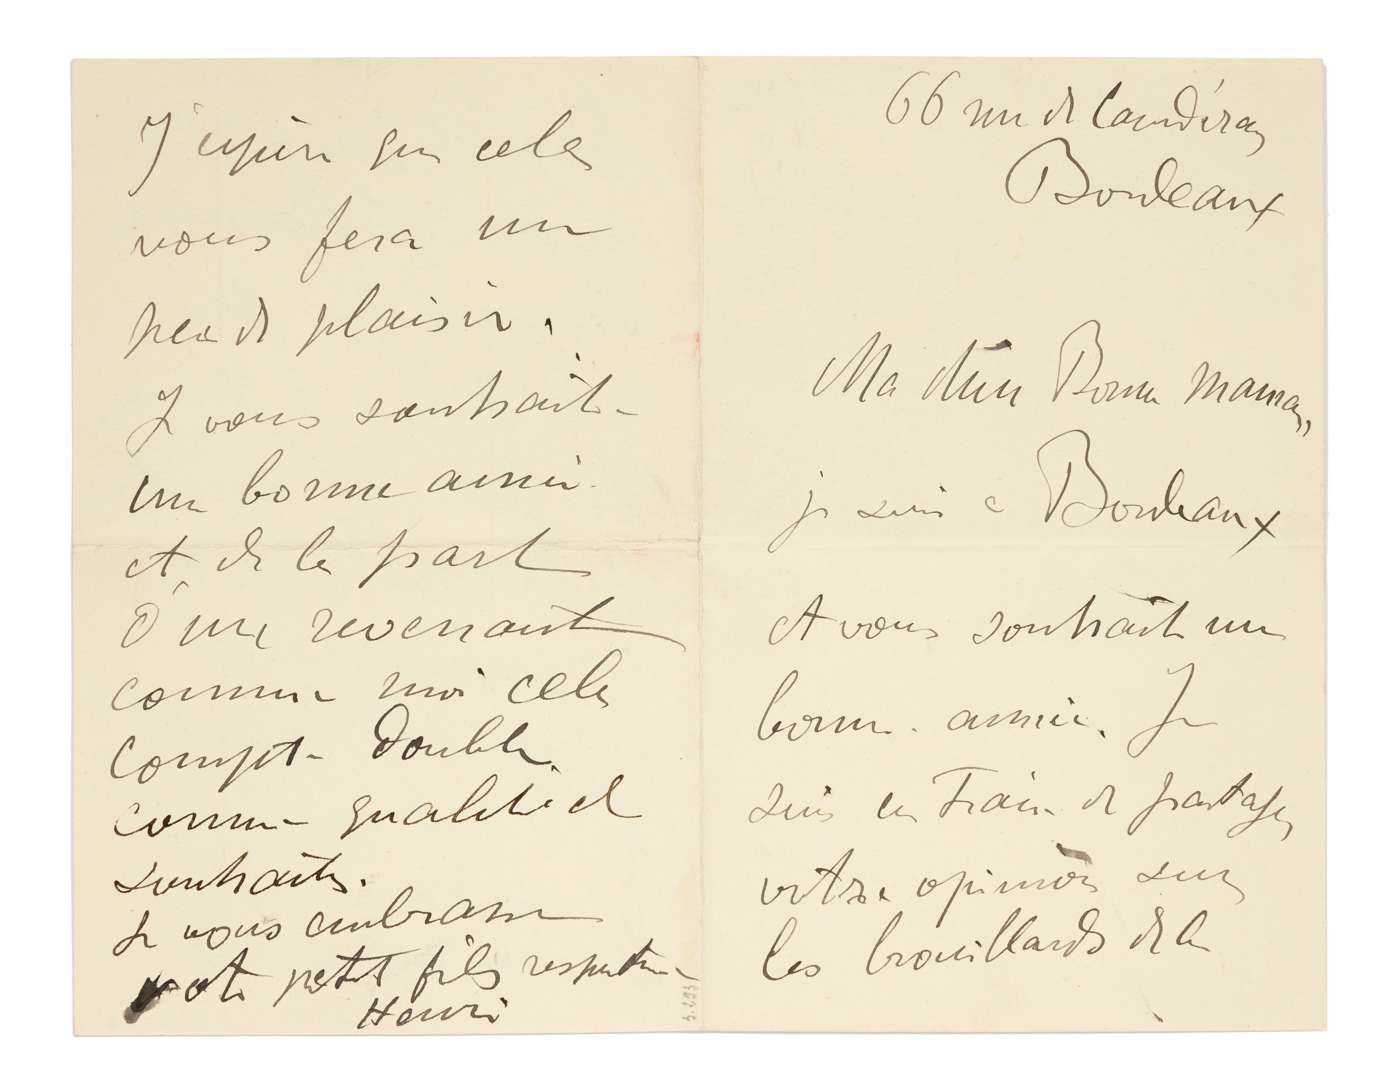 66 rue de Caudéran
Bordeaux
Ma chère Bonne Maman,
je suis à Bordeaux
et vous souhaite une
bonne année. Je
suis en train de partager
votre opinion sur
les brouillards de la
J'espère que cela
vous fera un
peu de plaisir.
Je vous souhaite
une bonne année
et de la part
d'un revenant
comme moi cela
compte double
comme qualité de
souhaits.
Je vous embrasse
votre petit fils respectueux
Henri